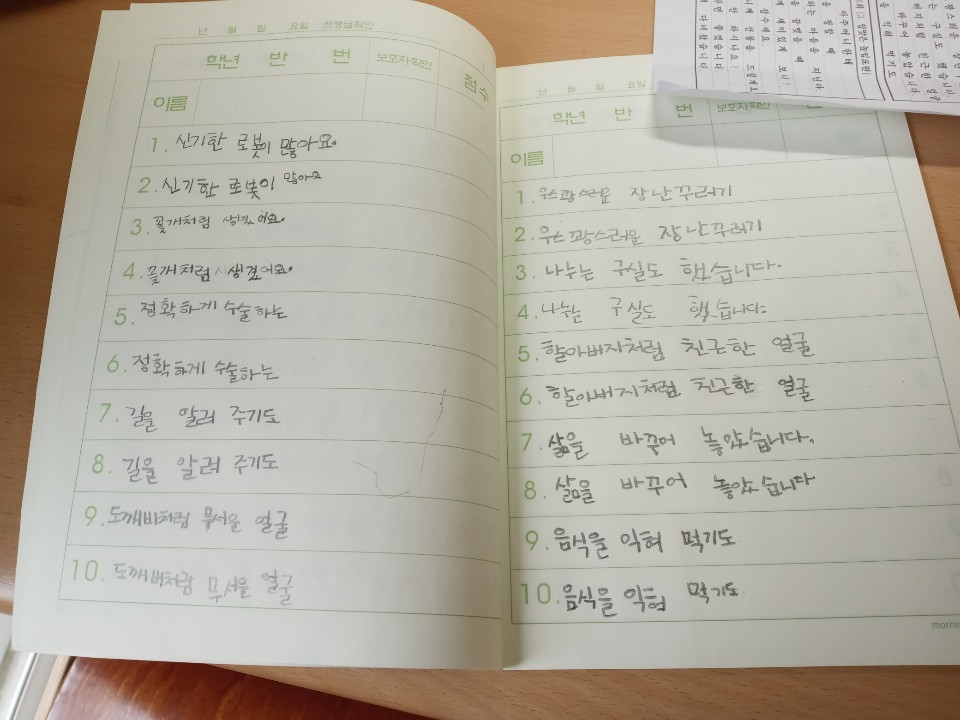 년 월 일 요일 선생님확인
학년 반 번 보호자확인 점수
이름
1. 신기한 로봇이 많아요.
2. 신기한 로봇이 많아요
3. 꽃게처럼 생겼어요.
4. 꽃게처럼 생겼어요.
5. 정확하게 수술하는
6. 정확하게 수술하는
7. 길을 알려 주기도
8. 길을 알려 주기도
9. 도깨비처럼 무서운 얼굴
10. 도깨비처럼 무서운 얼굴
년 월 일 요일
학년 반 번 보호자확인
이름
1. 우스꽝스러운 장난꾸러기
2. 우스꽝스러운 장난꾸러기
3. 나누는 구실도 했습니다.
4. 나누는 구실도 했습니다.
5. 할아버지처럼 친근한 얼굴
6. 할아버지처럼 친근한 얼굴
7. 삶을 바꾸어 놓았습니다.
8. 삶을 바꾸어 놓았습니다
9. 음식을 익혀 먹기도
10. 음식을 익혀 먹기도